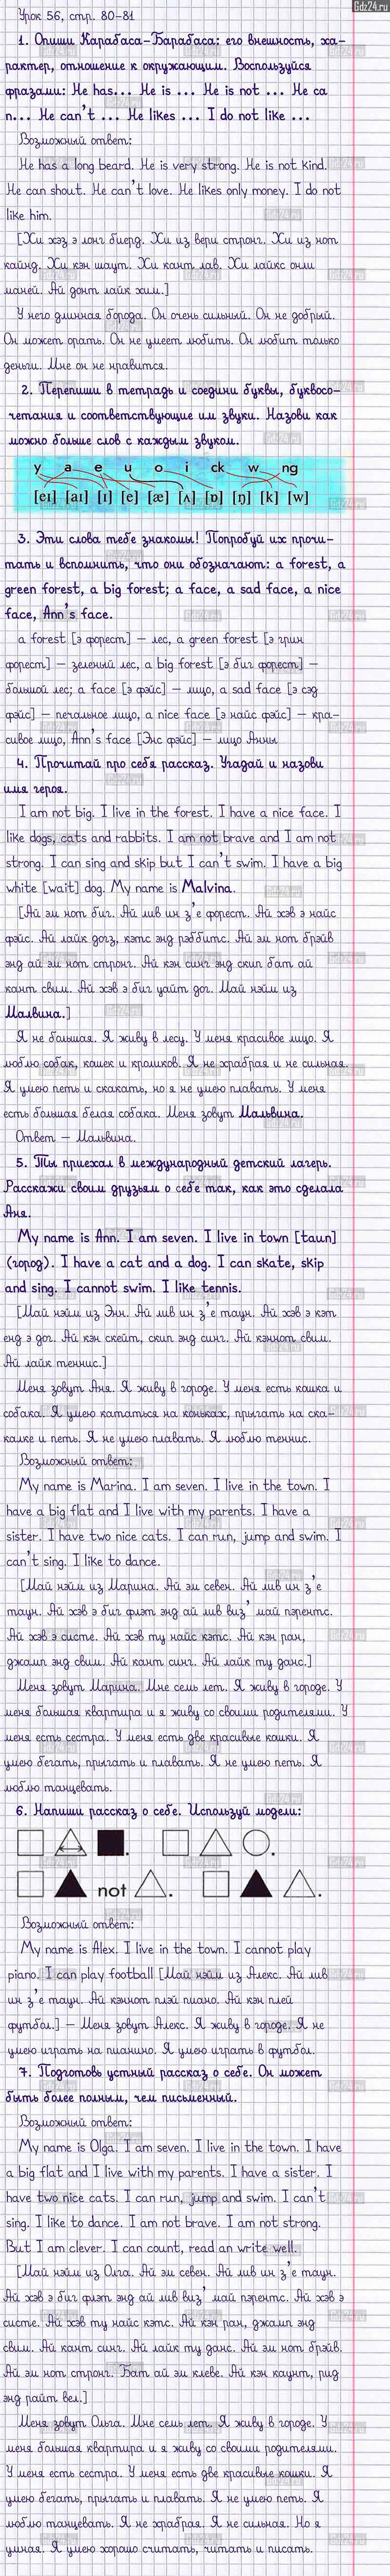 Gdz24.ru
Урок 56, стр. 80-81
1. Опиши Карабаса-Барабаса: его внешность, ха-
рактер, отношение к окружающим. Воспользуйся
фразами: He has... He is ... He is not ... He ca
n... He can't ... He likes ... I do not like ...
Возможный ответ:
He has a long beard. He is very strong. He is not kind.
He can shout. He can't love. He likes only money. I do not
like him.
[Хи хэз э лонг биерд. Хи из вери стронг. Хи из нот
кайнд. Хи кэн шаут. Хи кант лав. Хи лайкс онли
маней. Ай донт лайк хим.]
У него длинная борода. Он очень сильный. Он не добрый.
Он может орать. Он не умеет любить. Он любит только
деньги. Мне он не нравится.
2. Перепиши в тетрадь и соедини буквы, буквосо-
четания и соответствующие им звуки. Назови как
можно больше слов с каждым звуком.
y a e u o i ck w ng
[eɪ] [aɪ] [ɪ] [e] [æ] [ʌ] [ɒ] [ŋ] [k] [w]
3. Эти слова тебе знакомы! Попробуй их прочи-
тать и вспомнить, что они обозначают: a forest, a
green forest, a big forest; a face, a sad face, a nice
face, Ann's face.
a forest [э форест] – лес, a green forest [э грин
форест] – зеленый лес, a big forest [э биг форест] –
большой лес; a face [э фэйс] – лицо, a sad face [э сэд
фэйс] – печальное лицо, a nice face [э найс фэйс] – кра-
сивое лицо, Ann's face [Энс фэйс] – лицо Анны
4. Прочитай про себя рассказ. Угадай и назови
имя героя.
I am not big. I live in the forest. I have a nice face. I
like dogs, cats and rabbits. I am not brave and I am not
strong. I can sing and skip but I can't swim. I have a big
white [wait] dog. My name is Malvina.
[Ай эм нот биг. Ай лив ин з'е форест. Ай хэв э найс
фэйс. Ай лайк догз, кэтс энд рэббитс. Ай эм нот брэйв
энд ай эм нот стронг. Ай кэн синг энд скип бат ай
кант свим. Ай хэв э биг уайт дог. Май нэйм из
Малвина.]
Я не большая. Я живу в лесу. У меня красивое лицо. Я
люблю собак, кошек и кроликов. Я не храбрая и не сильная.
Я умею петь и скакать, но я не умею плавать. У меня
есть большая белая собака. Меня зовут Мальвина.
Ответ – Мальвина.
5. Ты приехал в международный детский лагерь.
Расскажи своим друзьям о себе так, как это сделала
Аня.
My name is Ann. I am seven. I live in town [taun]
(город). I have a cat and a dog. I can skate, skip
and sing. I cannot swim. I like tennis.
[Май нэйм из Энн. Ай лив ин з'е таун. Ай хэв э кэт
енд э дог. Ай кэн скейт, скип энд синг. Ай кэннот свим.
Ай лайк теннис.]
Меня зовут Аня. Я живу в городе. У меня есть кошка и
собака. Я умею кататься на коньках, прыгать на ска-
калке и петь. Я не умею плавать. Я люблю теннис.
Возможный ответ:
My name is Marina. I am seven. I live in the town. I
have a big flat and I live with my parents. I have a
sister. I have two nice cats. I can run, jump and swim. I
can't sing. I like to dance.
[Май нэйм из Марина. Ай эм севен. Ай лив ин з'е
таун. Ай хэв э биг флэт энд ай лив виз' май пэрентс.
Ай хэв э систе. Ай хэв ту найс кэтс. Ай кэн ран,
джамп энд свим. Ай кант синг. Ай лайк ту данс.]
Меня зовут Марина. Мне семь лет. Я живу в городе. У
меня большая квартира и я живу со своими родителями. У
меня есть сестра. У меня есть две красивые кошки. Я
умею бегать, прыгать и плавать. Я не умею петь. Я
люблю танцевать.
6. Напиши рассказ о себе. Используй модели:
not
Возможный ответ:
My name is Alex. I live in the town. I cannot play
piano. I can play football [Май нэйм из Алекс. Ай лив
ин з'е таун. Ай кэннот плэй пиано. Ай кэн плей
футбол.] – Меня зовут Алекс. Я живу в городе. Я не
умею играть на пианино. Я умею играть в футбол.
7. Подготовь устный рассказ о себе. Он может
быть более полным, чем письменный.
Возможный ответ:
My name is Olga. I am seven. I live in the town. I have
a big flat and I live with my parents. I have a sister. I
have two nice cats. I can run, jump and swim. I can't
sing. I like to dance. I am not brave. I am not strong.
But I am clever. I can count, read an write well.
[Май нэйм из Олга. Ай эм севен. Ай лив ин з'е таун.
Ай хэв э биг флэт энд ай лив виз' май пэрентс. Ай хэв э
систе. Ай хэв ту найс кэтс. Ай кэн ран, джамп энд
свим. Ай кант синг. Ай лайк ту данс. Ай эм нот брэйв.
Ай эм нот стронг. Бат ай эм клеве. Ай кэн каунт, рид
энд райт вел.]
Меня зовут Ольга. Мне семь лет. Я живу в городе. У
меня большая квартира и я живу со своими родителями.
У меня есть сестра. У меня есть две красивые кошки. Я
умею бегать, прыгать и плавать. Я не умею петь. Я
люблю танцевать. Я не храбрая. Я не сильная. Но я
умная. Я умею хорошо считать, читать и писать.